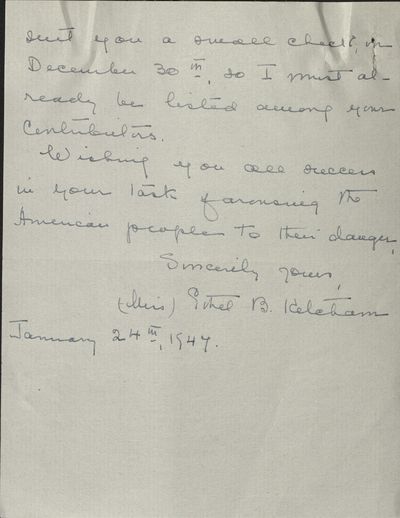 sent you a small check, in
December 30th, so I must al-
ready be listed among your
Contributors.
Wishing you all success
in your task of arousing the
American people to their danger,
Sincerely yours,
(Miss) Ethel B. Ketcham
January 24th, 1947.